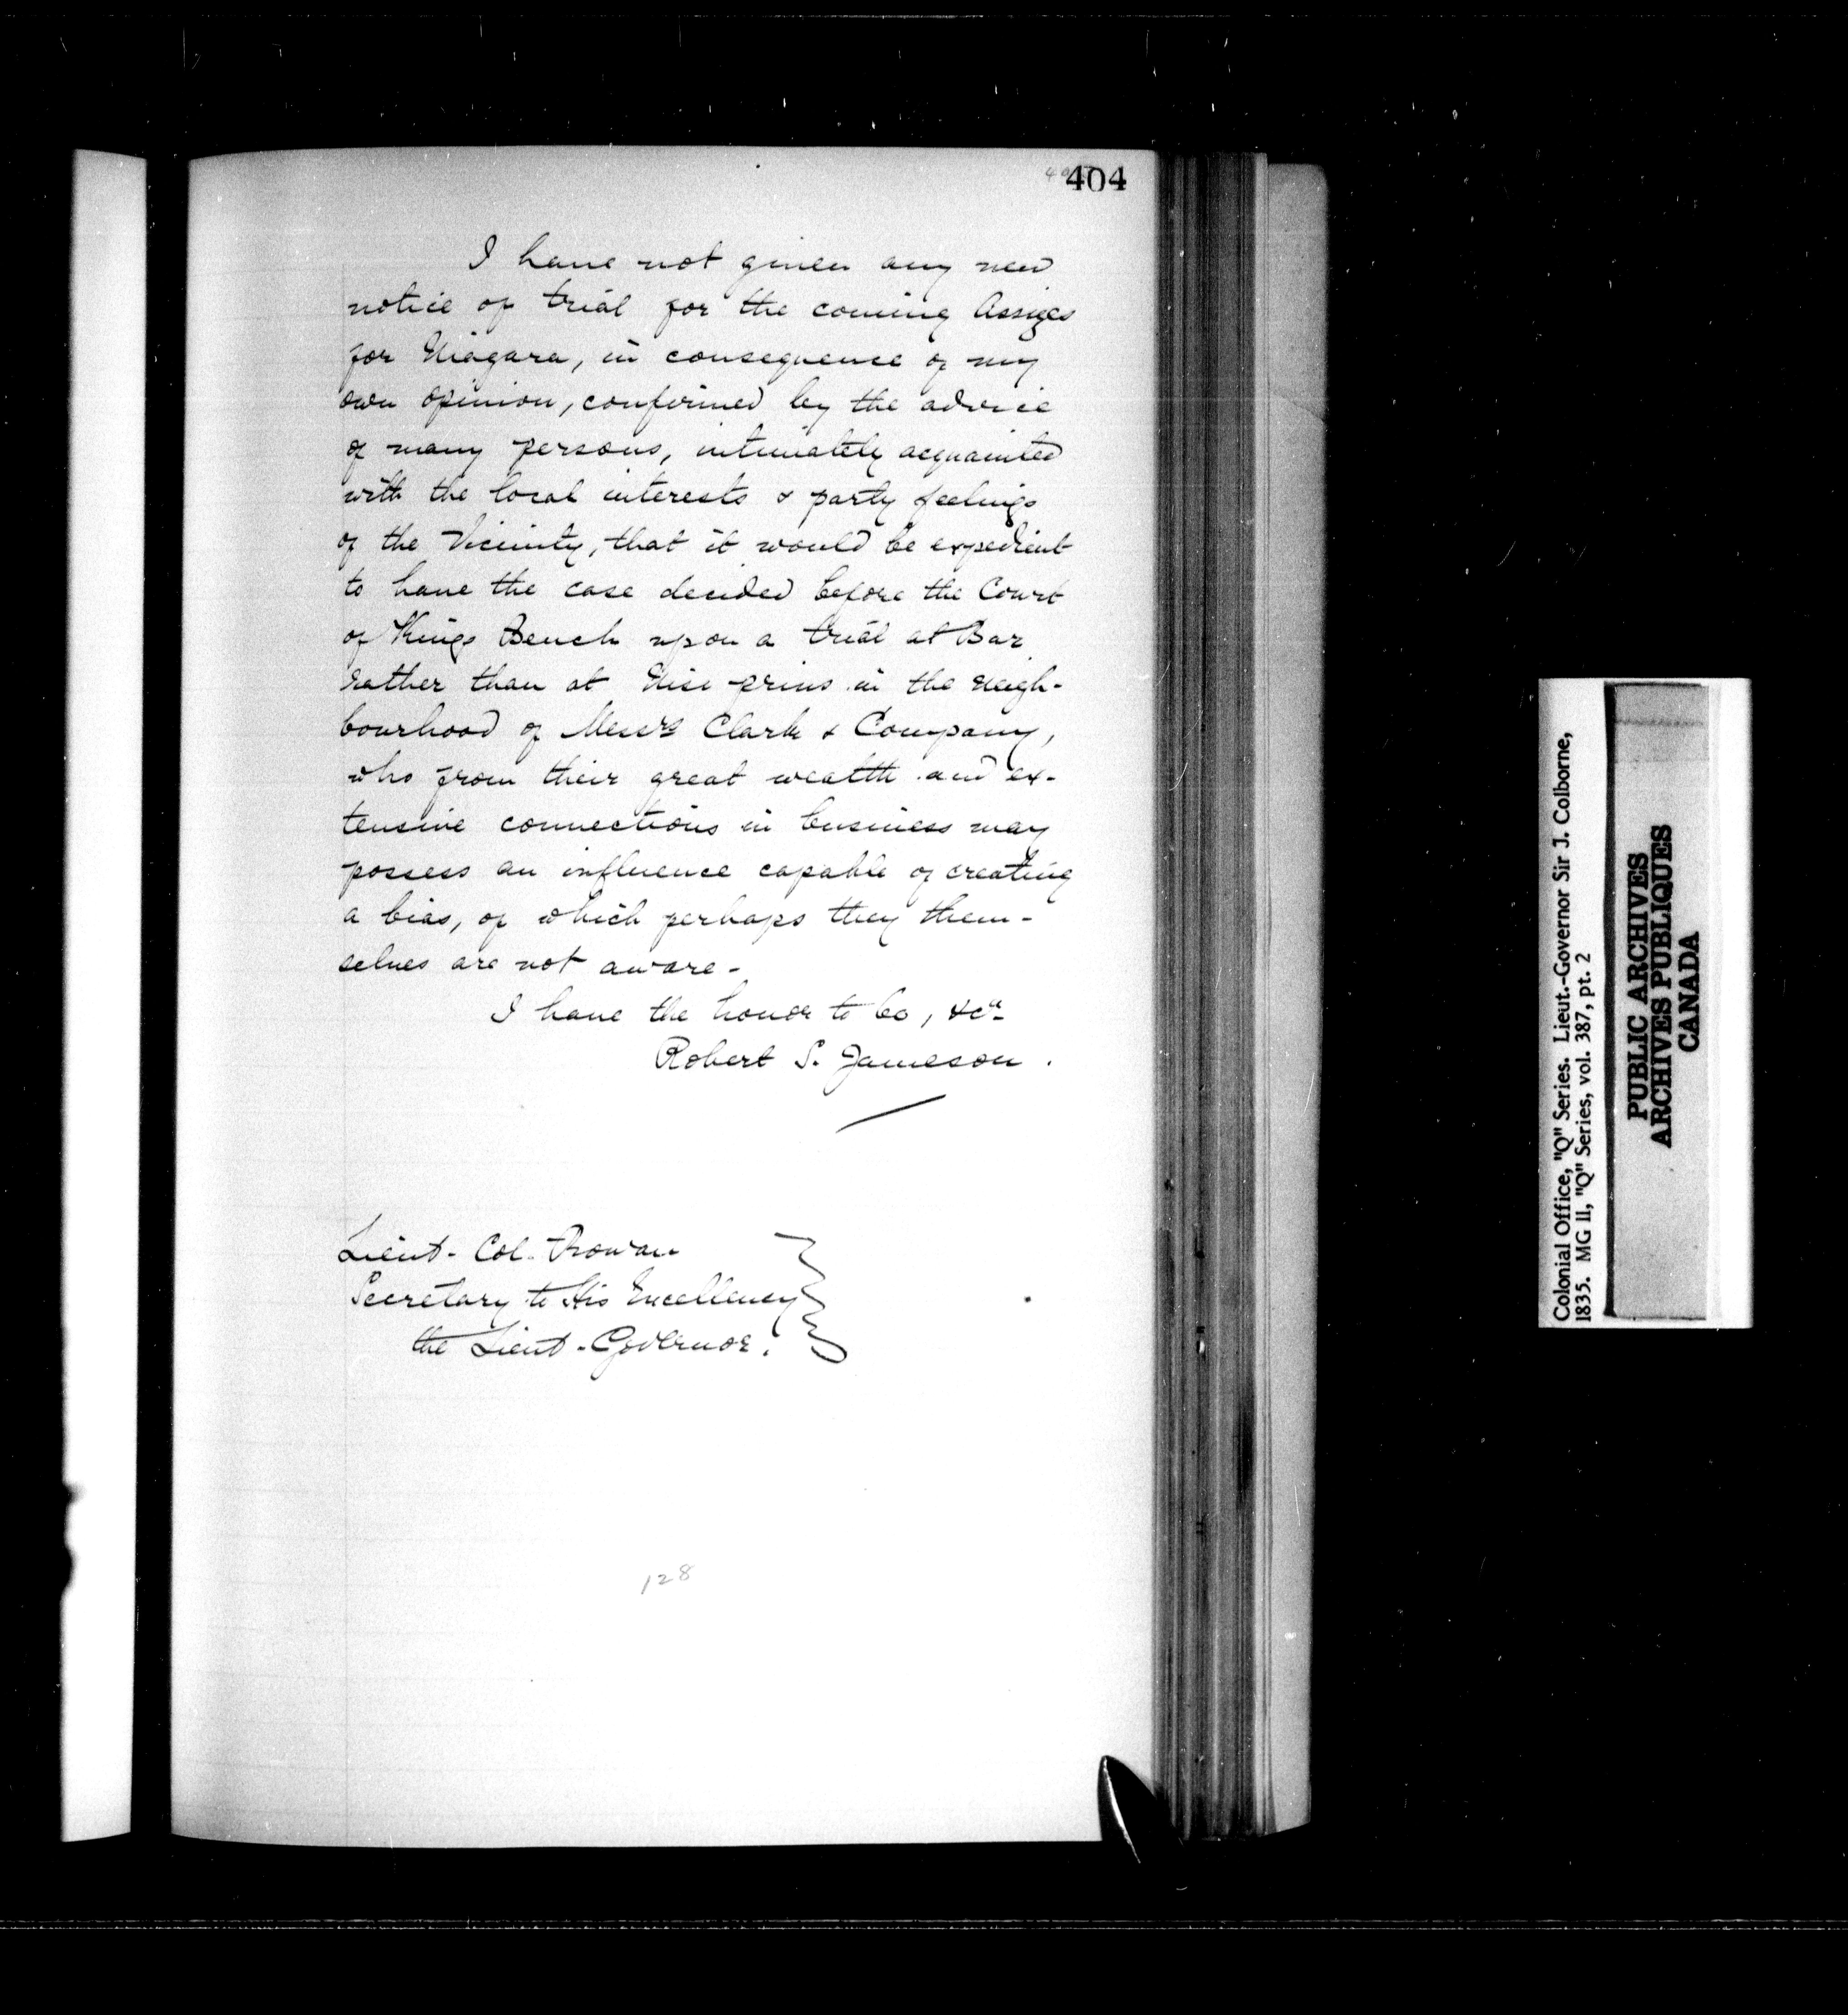 404
I have not given any new
notice of trial for the coming Assizes
for Niagara, in consequence of my
own opinion, confirmed by the advice
of many persons, intimately acquainted
with the local interests & party feelings
of the Vicinity, that it would be expedient
to have the case decided before the Court
of Kings Bench upon a trial at Bar
rather than at Nisi prius in the neigh-
bourhood of Messrs Clark & Company,
who from their great wealth and ex-
tensive connections in business may
possess an influence capable of creating
a bias, of which perhaps they them-
selves are not aware -
I have the honor to be, &ca
Robert S. Jameson.
Lieut- Col. Rowan
Secretary to His Excellency
the Lieut-Governor.
128
Colonial Office, "Q" Series. Lieut.-Governor Sir J. Colborne,
1835. MG 11, "Q" Series, vol. 387, pt. 2
PUBLIC ARCHIVES
ARCHIVES PUBLIQUES
CANADA